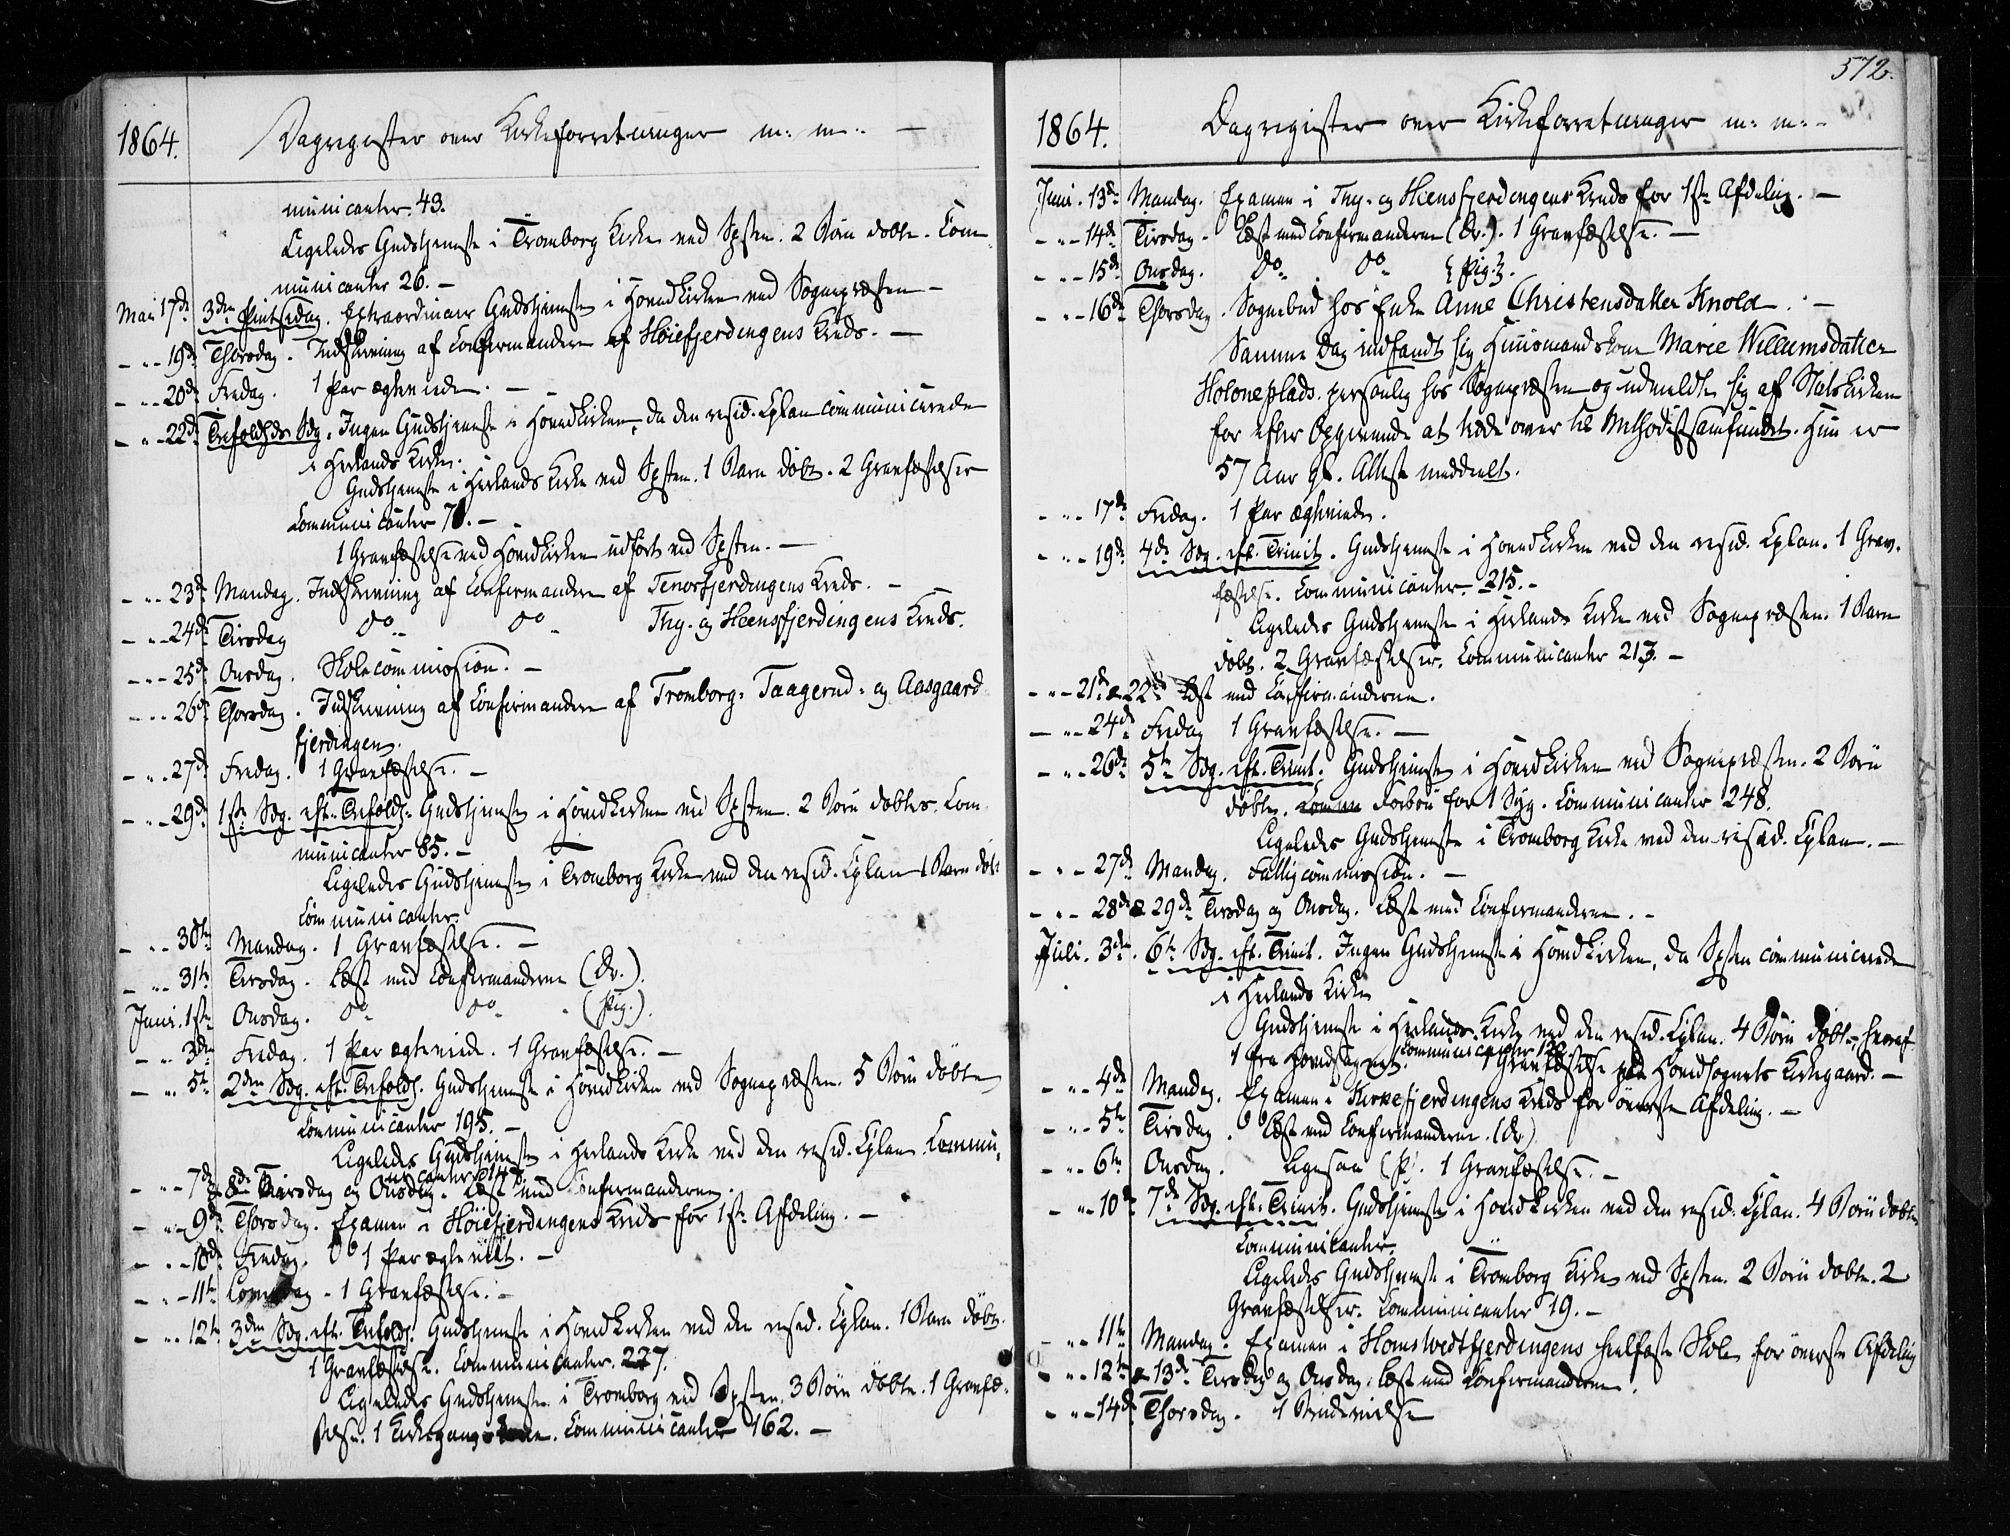 1864. Dagregister over Kirkeforretninger m: m:. —
municanter. 43.
Ligeledes Gudstjeneste i Tromborg Kirke ved Spsten. 2 Børn døbte. Com
municanter 26. —
Mai 17de 3die Pintsedag. Extraordinair Gudstjeneste i Hovedkirken ved Sognepræsten —
— „ - 19de Thorsdag. Indskrivning af Confirmander af Høiefjerdingens Kreds. —
— „ - 20de Fredag. 1 Par ægteviede. —
— „ - 22de Trefoldhds Sdg. Ingen Gudstjeneste i Hovedkirken, da den resid. Cplan communicerede
i Herlands Kirke.
Gudstjeneste i Herlands Kirke ved Spsten. 1 Barn døbt. 2 Gravfæstelser
Communicanter 71. —
1 Gravfæstelse ved Hovedkirken udført ved Spsten. —
— „ - 23de Mandag. Indskrivning af Confirmander af Tenorfjerdingens Kreds. —
— „ - 24de Tirsdag do do Thy- og Heensfjerdingens Kreds.
— „ - 25de Onsdag. Skolecommission. —
— „ - 26de Thorsdag. Indskrivning af Confirmander af Tromborg- Taagerud- og Aasgaard
fjerdingen.
— „ - 27de Fredag. 1 Gravfæstelse. —
— „ - 29de 1ste Sdg. eft. Trefoldh. Gudstjeneste i Hovedkirken ved Spsten. 2 Børn døbtes. Com
municanter 85. —
Ligeledes Gudstjeneste i Tromborg Kirke ved den resid. Cplan 1 Barn døbt
Communicanter.
— „ - 30te Mandag. 1 Gravfæstelse. —
— „ - 31te Tirsdag. Læst med Confirmanderne (Dr.).
Juni. 1ste Onsdag. do do (Pig.).
— „ 3die Fredag. 1 Par ægteviede. 1 Gravfæstelse. —
— „ 5te 2den Sdg. eft. Trefoldh. Gudstjeneste i Hovedkirken ved Sognepræsten. 5 Børn døbte
Communicanter 195. —
Ligeledes Gudstjeneste i Herlands Kirke ved den resid. Cplan. Commu,
nicanter 147.
— „ - 7de & 8de Tirsdag og Onsdag. Læst med Confirmanderne.
— „ - 9de Thorsdag. Examen i Høiefjerdingens Kreds for 1ste Afdeling. —
— „ - 10de Fredag. 1 Par ægteviet. —
— „ - 11te Lørdag - 1 Gravfæstelse. —
— „ - 12te 3die Sdg. eft. Trefoldh. Gudstjeneste i Hovedkirken ved den resid. Cplan. 1 Barn døbt.
1 Gravfæstelse. Communicanter. 227.
Ligeledes Gudstjeneste i Tromborg ved Spsten. 3 Børn døbte. 1 Gravfæ-
stelse. 1 Kirkegangskone. Communicanter 162. —
572.
1864. Dagregister over Kirkeforretninger m: m: -
Juni. 13de Mandag. Examen i Thy- og Heensfjerdingens Kreds for 1ste Afdeling. —
— „ - 14de Tirsdag. Læst med Confirmanderne (Dr.). 1 Gravfæstelse. —
— „ - 15de Onsdag. do do (Pig.).
— „ - 16de Thorsdag. Sognebud hos Enke Anne Christensdatter Knold. —
Samme Dag indfandt sig Huusmandskone Marie Willumsdatter
Holoneplads. personlig hos Sognepræsten og udmeldte sig af Statskirken
for efter Opgivende at træde over til Methodistsamfundet. Hun er
57 Aar gl. Attest meddeelt.
— „ - 17de Fredag. 1 Par ægteviede.
— „ - 19de 4de Sdg. eft. Trinit. Gudstjeneste i Hovedkirken ved den resid. Cplan. 1 Grav-
fæstelse. Communicanter. 215. —
Ligeledes Gudstjeneste i Herlands Kirke ved Sognepræsten. 1 Barn
døbt. 2 Gravfæstelser. Communicanter 213. —
— „ - 21de & 22de Læst med Confirmanderne.
— „ - 24de Fredag 1 Gravfæstelse. —
— „ - 26de 5te Sdg. eft. Trinit. Gudstjeneste i Hovedkirken ved Sognepræsten. 2 Børn
døbte. Forbøn for 1 Syg. Communicanter 248.
Ligeledes Gudstjeneste i Tromborg Kirke ved den resid. Cplan. —
— „ - 27de Mandag. Fattigcommission. —
— „ - 28de & 29de Tirsdag og Onsdag. Læst med Confirmanderne. —
Juli. 3die. 6te Sdg. eft. Trinit. Ingen Gudstjeneste i Hovedkirken, da Spsten communicerede
i Herlands Kirke
Gudstjeneste i Herlands Kirke ved den resid. Cplan. 4 Børn døbte, hvoraf
1 fra Hovedsognet. Communicanter 1 Gravfæstelse paa Hovedsognets Kirkegaard. —
— „ - 4de Mandag. Examen i Kirkefjerdingens Kreds for øverste Afdeling. —
— „ - 5te Tirsdag. Læst med Confirmanderne. (Dr)
— „ - 6te Onsdag. Ligesaa (P). 1 Gravfæstelse. —
— „ - 10de 7de Sdg. eft. Trinit. Gudstjeneste i Hovedkirken ved den resid. Cplan. 4 Børn døbte.
Communicanter.
Ligeledes Gudstjeneste i Tromborg Kirke ved Spsten. 2 Børn døbte. 2
Gravfæstelser. Communicanter 19. —
— „ - 11te Mandag. Examen i Homstvedtfjerdingens heelfaste Skole for øverste Afdeling
— „ - 12te & 13de Tirsdag og Onsdag. Læst med Confirmanderne.
— „ - 14de Thorsdag. 1 Brudevielse